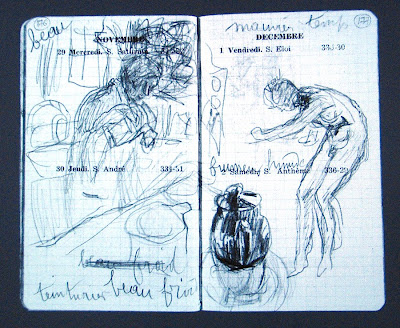 176
beau
NOVEMBRE
29 Mercredi. S. Saturnin
30 Jeudi. S. André 334-31
beau froid
teinturier beau froid
mauvais temps
177
DECEMBRE
1 Vendredi. S. Eloi 335-30
2 Samedi. S. Anthème 336-29